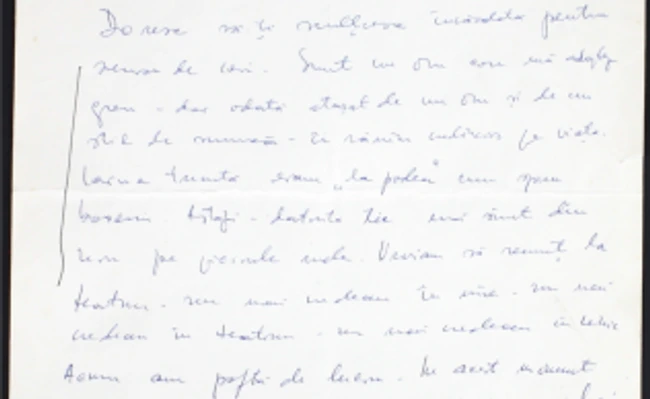 Doresc să-ți mulțumesc încăodată pentru
scrisoarea de ieri. Sunt un om care mă adaptez
greu - dar odată atașat de un om și de un
stil de muncă - îi rămân credincios pe viață.
Iarna trecută eram „la podea” cum spun
boxerii. Astăzi - datorită ție mă simt din
nou pe picioarele mele. Vroiam să renunț la
teatru - nu mai credeam în mine - nu mai
credeam în teatru - nu mai credeam în
Acum am poftă de lucru. În acest moment